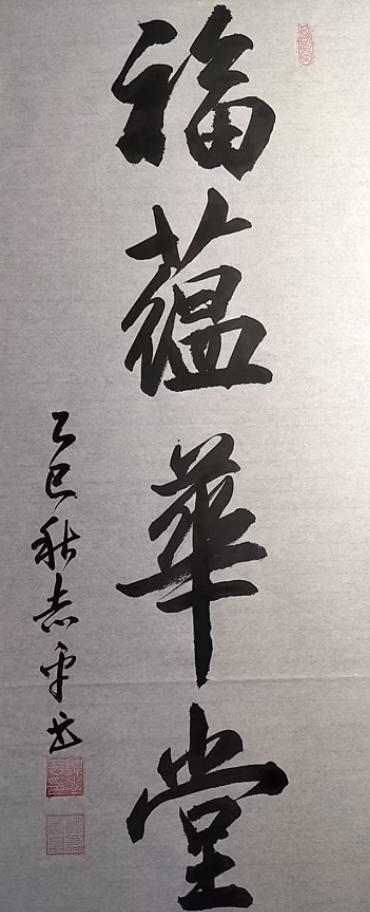 福蕴華堂
乙巳秋志平书